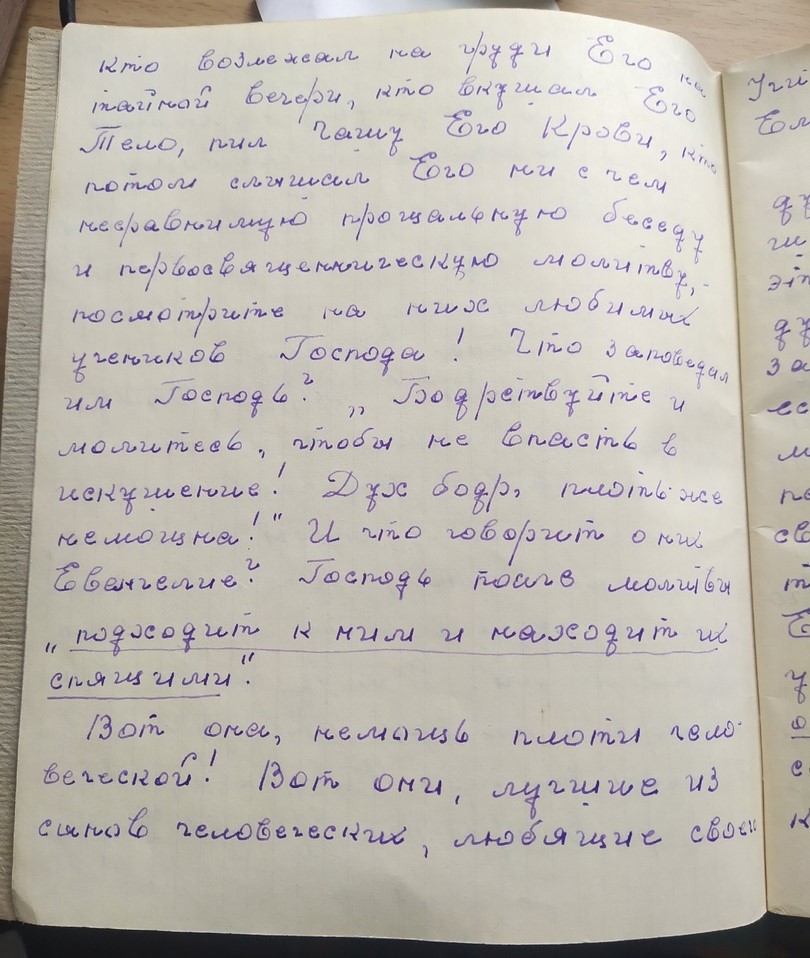 кто возлежал на груди Его на
тайной вечери, кто вкушал Его
Тело, пил Чашу Его Крови, кто
потом слышал Его ни с чем
несравнимую прощальную беседу
и первосвященническую молитву, -
посмотрите на них любимых
учеников Господа! Что заповедал
им Господь? „Бодрствуйте и
молитесь, чтобы не впасть в
искушение! Дух бодр, плоть же
немощна!" И что говорит о них
Евангелие? Господь после молитвы
„подходит к ним и находит их
спящими".
Вот она, немощь плоти чело-
веческой! Вот они, лучшие из
сынов человеческих, любящие своего